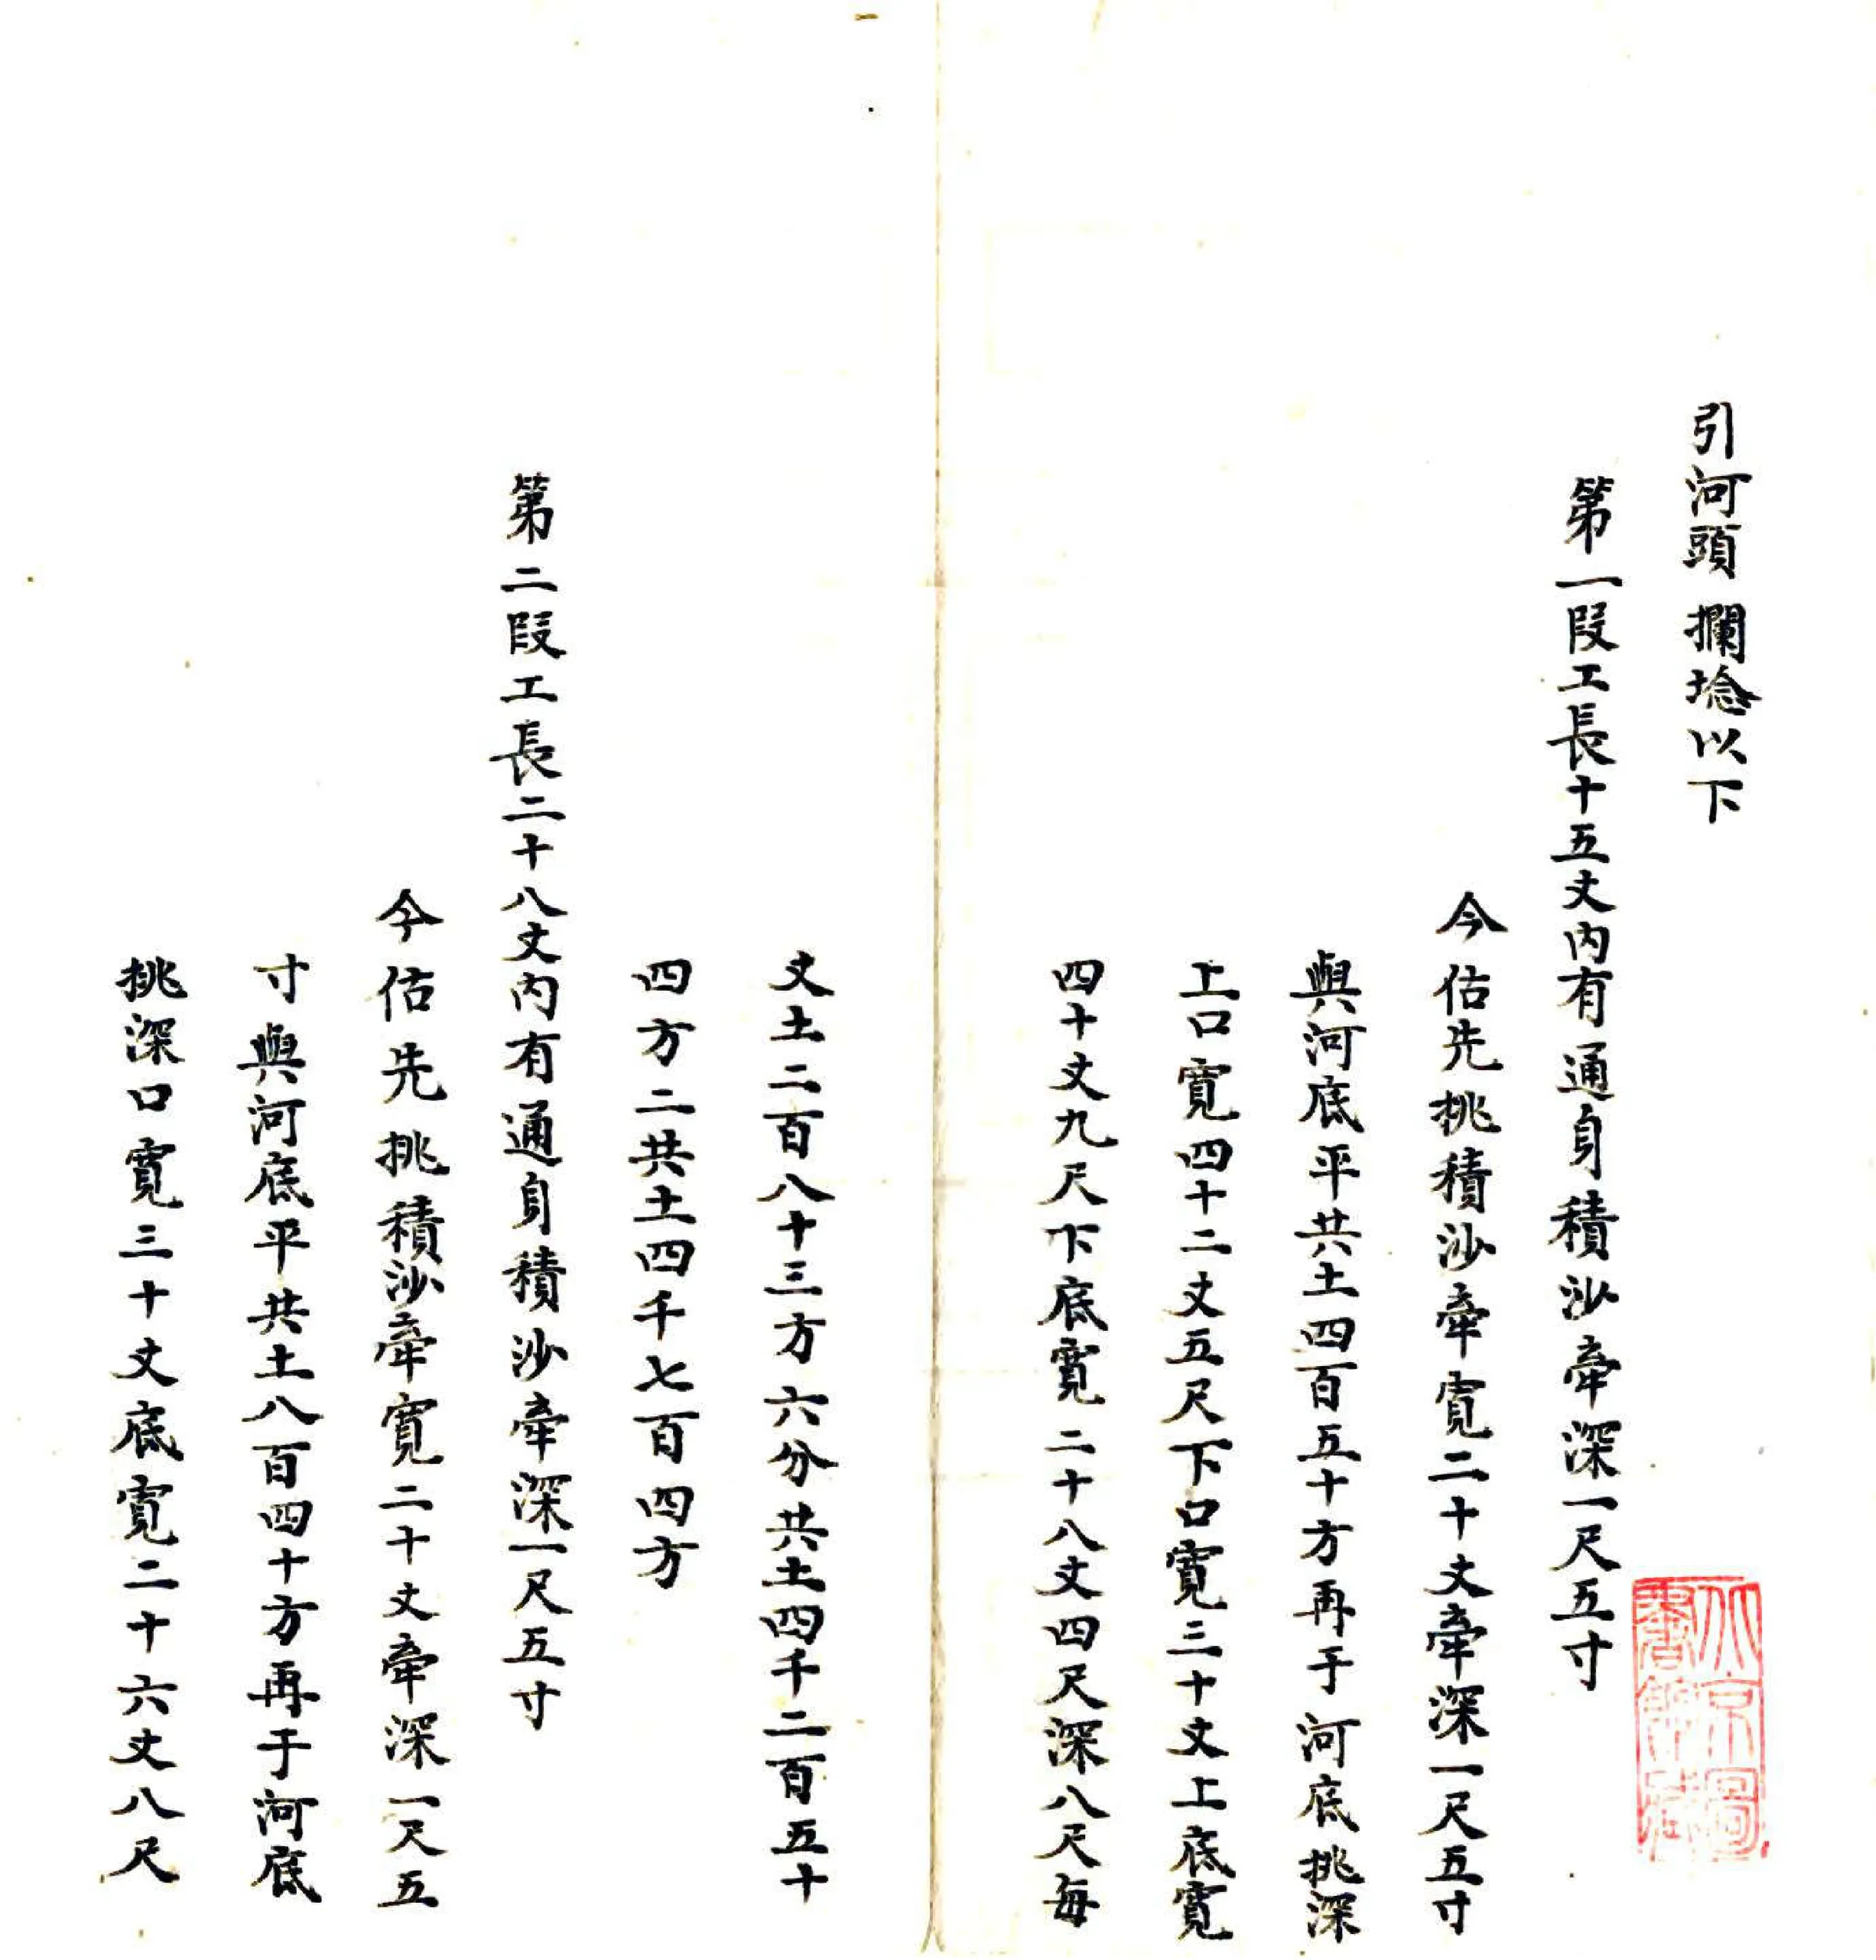 引河頭攔埝以下
第一段工長十五丈內有通身積沙牽深一尺五寸
今估先挑積沙牽寬二十丈牽深一尺五寸
與河底平共土四百五十方再于河底挑深
上口寬四十二丈五尺下口寬三十丈上底寬
四十丈九尺下底寬二十八丈四尺深八尺每
丈土二百八十三方六分共土四千二百五十
四方二共土四千七百四方
第二段工長二十八丈內有通身積沙牽深一尺五寸
今估先挑積沙牽寬二十丈牽深一尺五
寸與河底平共土八百四十方再于河底
挑深口寬三十丈底寬二十六丈八尺
北京圖
書館藏